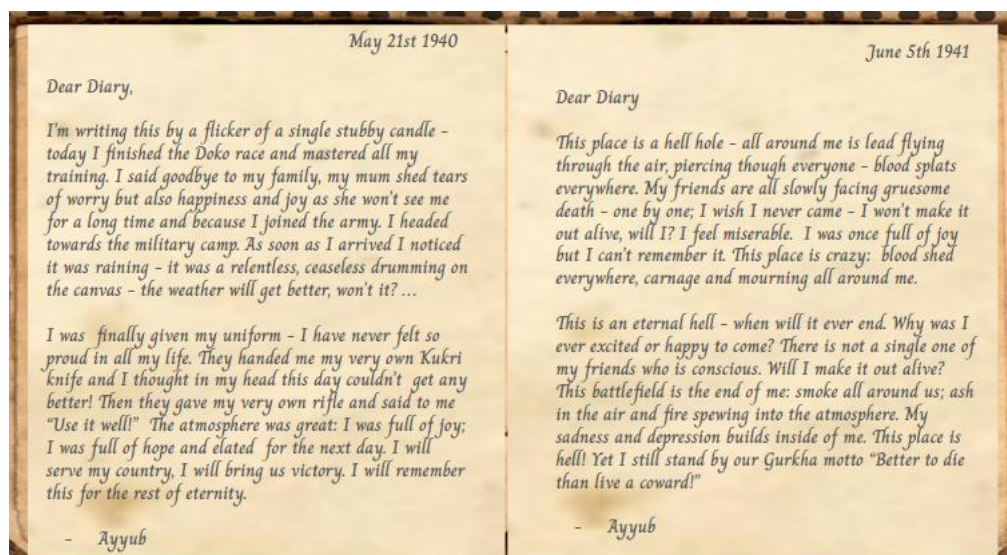 May 21st 1940
Dear Diary,
I'm writing this by a flicker of a single stubby candle –
today I finished the Doko race and mastered all my
training. I said goodbye to my family, my mum shed tears
of worry but also happiness and joy as she won't see me
for a long time and because I joined the army. I headed
towards the military camp. As soon as I arrived I noticed
it was raining – it was a relentless, ceaseless drumming on
the canvas – the weather will get better, won't it? …
I was finally given my uniform – I have never felt so
proud in all my life. They handed me my very own Kukri
knife and I thought in my head this day couldn't get any
better! Then they gave my very own rifle and said to me
"Use it well!" The atmosphere was great: I was full of joy;
I was full of hope and elated for the next day. I will
serve my country, I will bring us victory. I will remember
this for the rest of eternity.
- Ayyub
June 5th 1941
Dear Diary
This place is a hell hole – all around me is lead flying
through the air, piercing though everyone – blood splats
everywhere. My friends are all slowly facing gruesome
death – one by one; I wish I never came – I won't make it
out alive, will I? I feel miserable. I was once full of joy
but I can't remember it. This place is crazy: blood shed
everywhere, carnage and mourning all around me.
This is an eternal hell – when will it ever end. Why was I
ever excited or happy to come? There is not a single one of
my friends who is conscious. Will I make it out alive?
This battlefield is the end of me: smoke all around us; ash
in the air and fire spewing into the atmosphere. My
sadness and depression builds inside of me. This place is
hell! Yet I still stand by our Gurkha motto "Better to die
than live a coward!"
- Ayyub